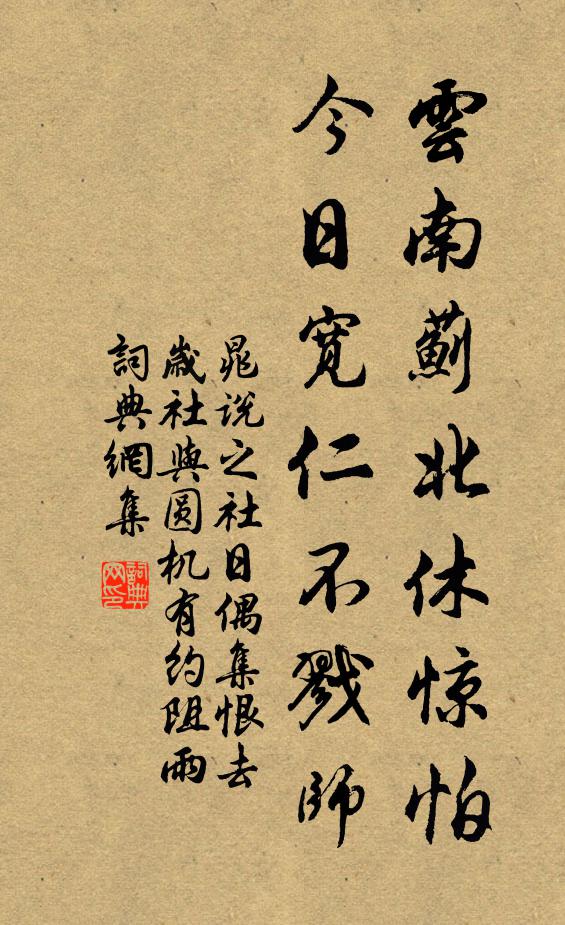 雲南薊北休惊怕
今日寛仁不戮師
晁说之社日偶集恨去
歳社與圆机有约阻雨
詞典網集
詞典网印